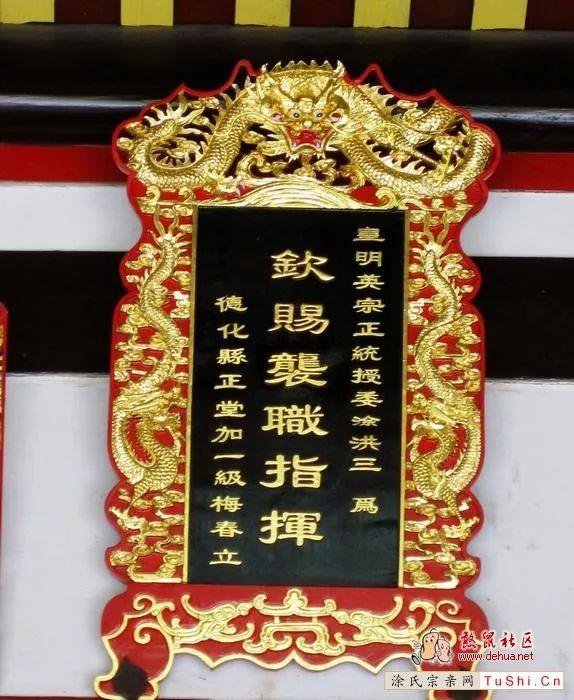 皇明英宗正統授委涂洪三 爲
欽賜襲職指揮
德化縣正堂加一級梅春立
敨鼠社区
www.dehua.net
涂氏宗亲网 TuShi.Cn